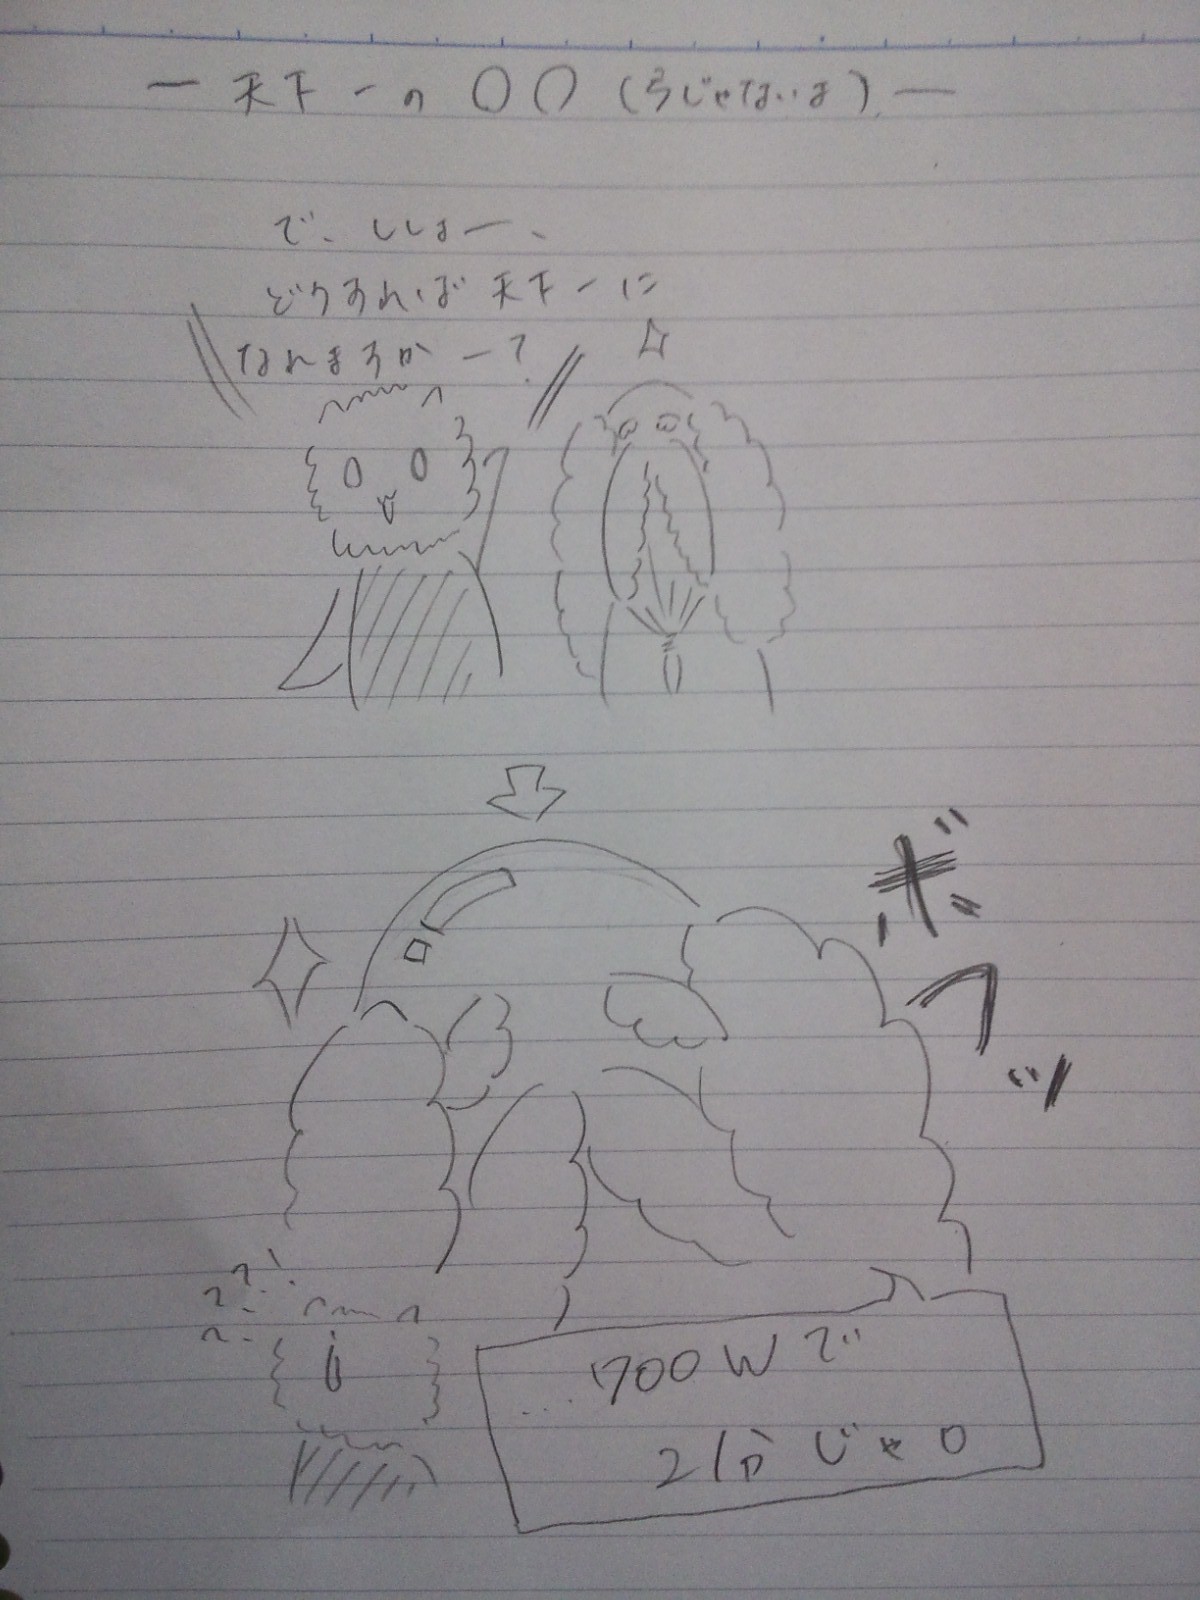 ー天下一の〇〇(弓じゃないよ)ー
で、ししょー、
どうすれば天下一に
なれますかー?
ボフッ
???
…700Wで
2分じゃ。